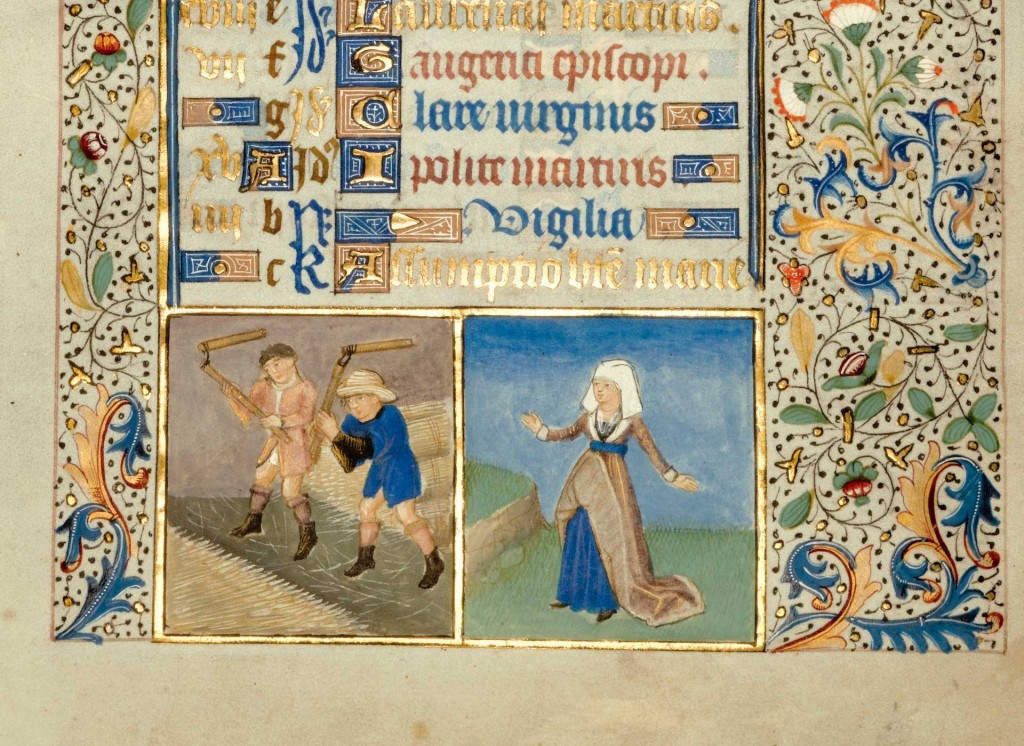 xviii e Laurencii martiris.
vii f Gaugerici episcopi.
g Clare virginis
xv A Jdꝯ Ipolite martiris
iiii b Vigilia
c k Assumptio bt̄e marie